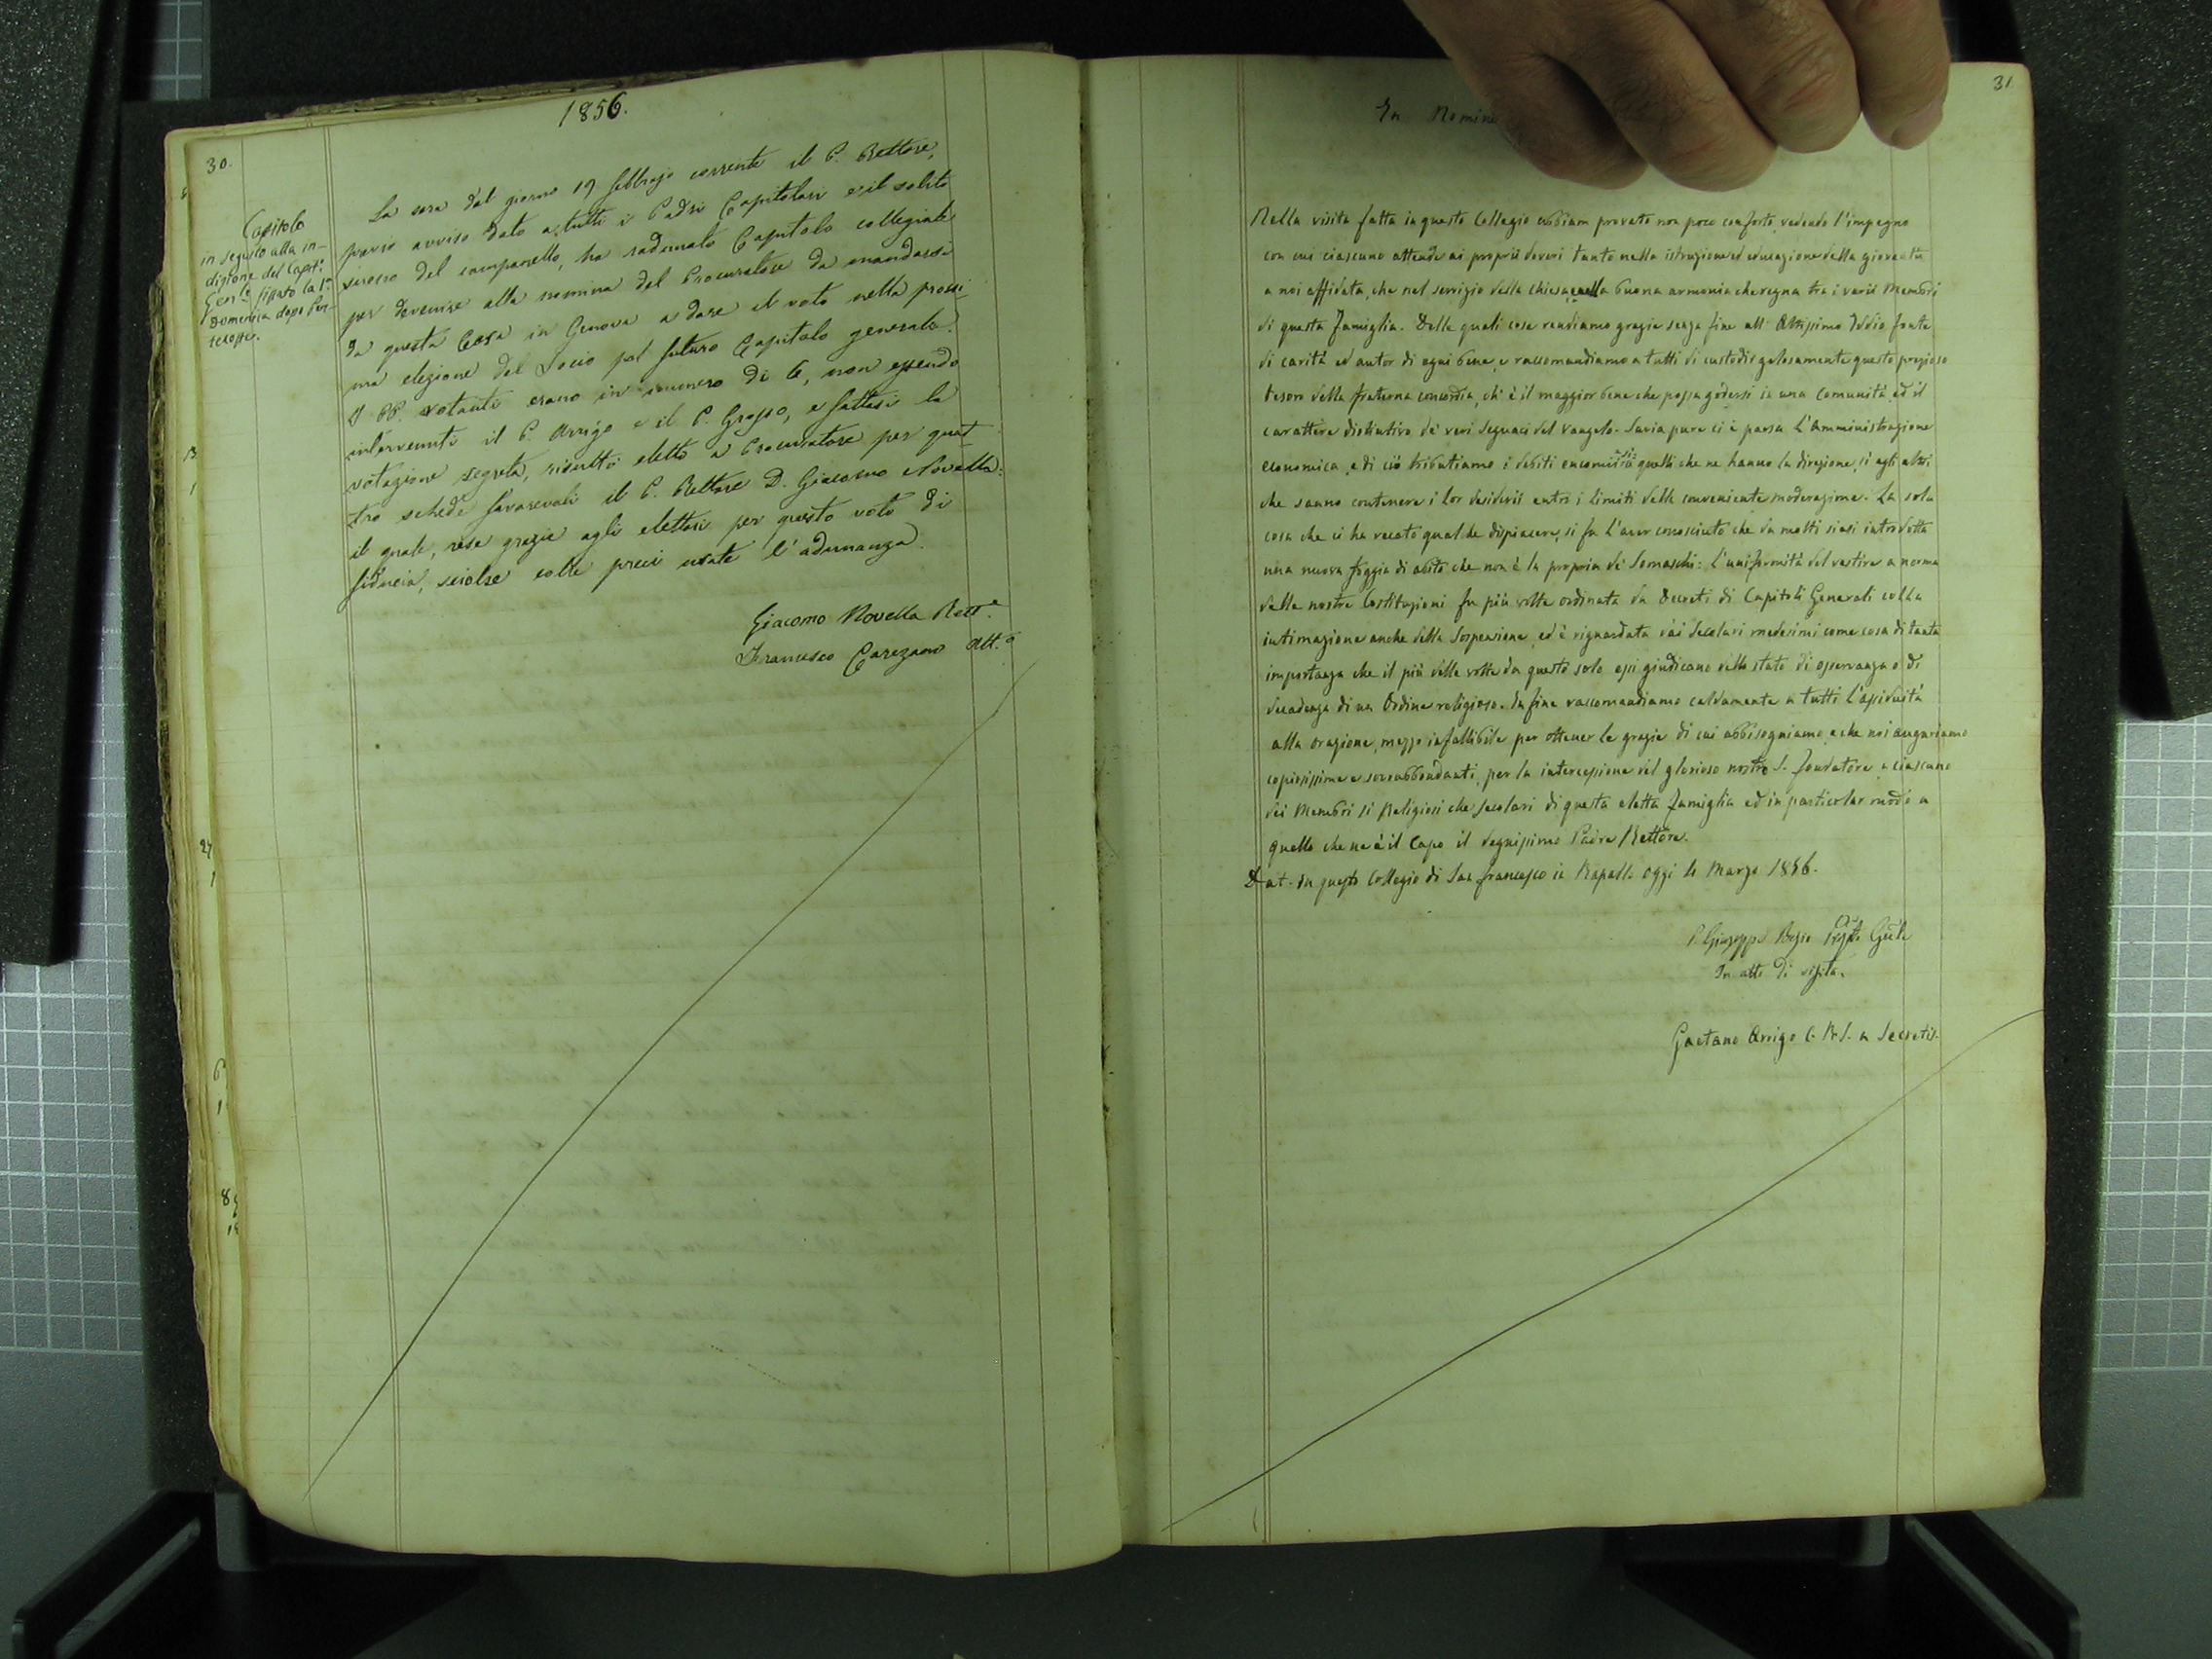 1856.
30.
Capitolo
in seguito alla in-
dizione del Capit.º
Gen.le fissato la 1ª
Domenica dopo Pen-
tecoste.
La sera del giorno 19 febbrajo corrente il P. Rettore,
previo avviso dato a tutti i Padri Capitolari e il solito
suono del campanello, ha radunato Capitolo collegiale
per devenire alla nomina del Procuratore da mandarsi
da questa Casa in Genova a dare il voto nella prossi-
ma elezione del Socio pel futuro Capitolo generale.
I PP. votanti erano in numero di 6, non essendo
intervenuti il P. Arrigo e il P. Grosso, e fattasi la
votazione segreta, risultò eletto a Procuratore per quat-
tro schede favorevoli il P. Rettore D. Giacomo Novella:
il quale, rese grazie agli elettori per questo voto di
fiducia, sciolse colle preci usate l'adunanza.
Giacomo Novella Rett.e
Francesco Carezano Att.º
31
In Nomine
Nella visita fatta in questo Collegio abbiam provato non poco conforto, vedendo l'impegno
con cui ciascuno attende ai proprii doveri tanto nella istruzione ed educazione della gioventù
a noi affidata, che nel servizio della chiesa, e nella buona armonia che regna tra i varii Membri
di questa Famiglia. Delle quali cose rendiamo grazie senza fine all' Altissimo Iddio fonte
di carità ed autor di ogni bene, e raccomandiamo a tutti di custodir gelosamente questo prezioso
tesoro della fraterna concordia, ch' è il maggior bene che possa godersi in una Comunità, ed il
carattere distintivo de' veri seguaci del Vangelo. Savia pure ci è parsa l'Amministrazione
economica, e di ciò tributiamo i debiti encomii sì a quelli che ne hanno la direzione, sì agli altri
che sanno contenere i lor desiderii entro i limiti della conveniente moderazione. La sola
cosa che ci ha recato qualche dispiacere, si fu l'aver conosciuto che da molti siasi introdotta
una nuova foggia di abito che non è la propria de' Somaschi: l'uniformità del vestire a norma
delle nostre Costituzioni fu più volte ordinata da Decreti di Capitoli Generali colla
intimazione anche della sospensione, ed è riguardata dai Secolari medesimi come cosa di tanta
importanza che il più delle volte da questo solo essi giudicano dello stato di osservanza o di
decadenza di un Ordine religioso. In fine raccomandiamo caldamente a tutti l'assiduità
alla orazione, mezzo infallibile per ottener le grazie di cui abbisogniamo, e che noi auguriamo
copiosissime e sovrabbondanti, per la intercessione del glorioso nostro S. Fondatore a ciascuno
dei Membri sì Religiosi che Secolari di questa eletta Famiglia ed in particolar modo a
quello che ne è il Capo il degnissimo Padre Rettore.
Dat. da questo Collegio di San Francesco in Rapallo oggi li Marzo 1856.
P. Giuseppe Gnle
In atto di visita.
Gaetano Arrigo C. R. S. a Secretis.